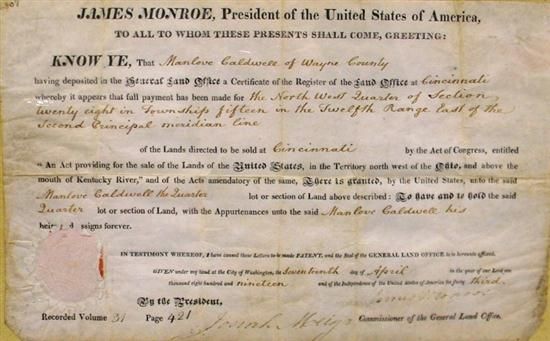 JAMES MONROE, President of the United States of America,
TO ALL TO WHOM THESE PRESENTS SHALL COME, GREETING:
KNOW YE, That Manlove Caldwell of Wayne County
having deposited in the General Land Office a Certificate of the Register of the Land Office at Cincinnati
whereby it appears that full payment has been made for the North West Quarter of Section
twenty eight in Township fifteen in the Twelfth Range East of the
Second Principal meridian line
of the Lands directed to be sold at Cincinnati by the Act of Congress, entitled
“An Act providing for the sale of the Lands of the United States, in the Territory north west of the Ohio, and above the
mouth of Kentucky River,” and of the Acts amendatory of the same, There is granted, by the United States, unto the said
Manlove Caldwell the Quarter lot or section of Land above described: To have and to hold the said
Quarter lot or section of Land, with the Appurtenances unto the said Manlove Caldwell his
heirs assigns forever.
IN TESTIMONY WHEREOF, I have caused these Letters to be made PATENT, and the Seal of the GENERAL LAND OFFICE to be hereunto affixed.
GIVEN under my hand at the City of Washington, the Seventeenth day of April in the year of our Lord one
thousand eight hundred and nineteen and of the Independence of the United States the forty third.
By the President,
Josiah Meigs Commissioner of the General Land Office.
Recorded Volume 31 Page 421